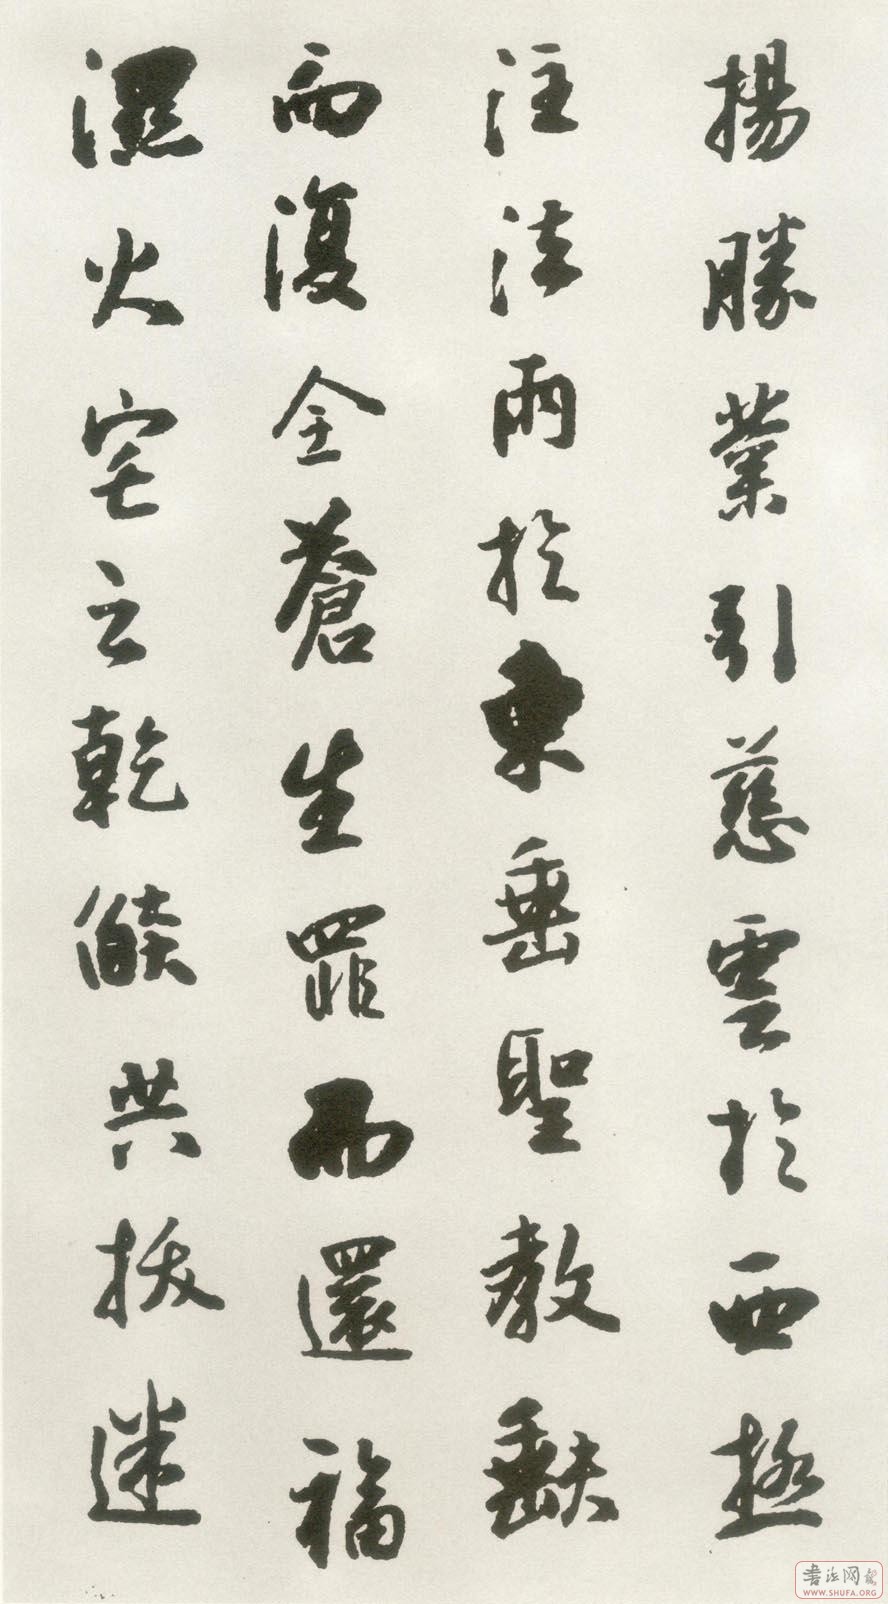 揚勝業引慈雲於西極
注法雨於東垂聖教缺
而復全蒼生罪而還福
濕火宅之乾燄共拔迷
书法网
WWW.SHUFA.ORG